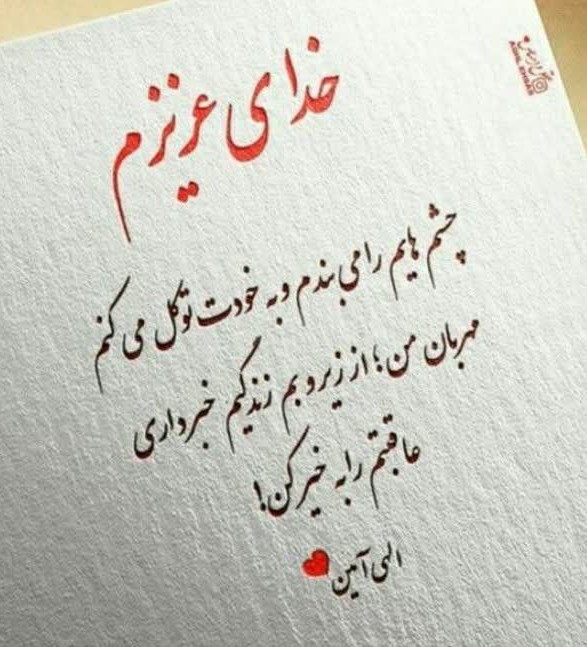 خدای عزیزم
چشم هایم را می بندم و به خودت توکل می کنم
مهربان من؛ از زیر و بم زندگیم خبر داری
عاقبتم را به خیر کن!
الهی آمین